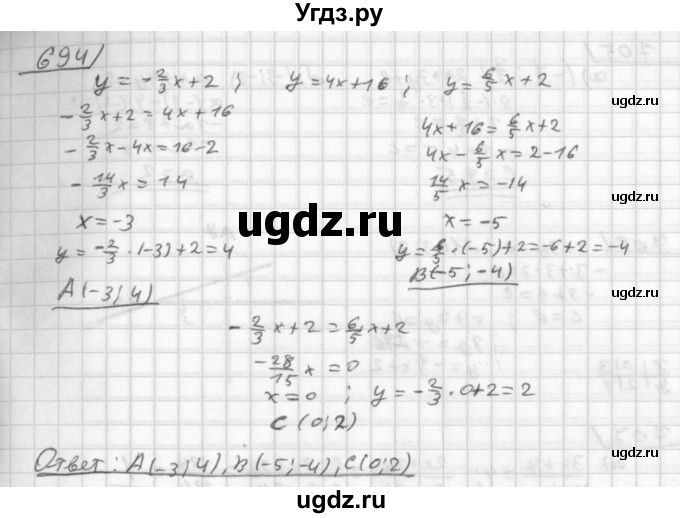 Угдз.ру
694)
y = -2/3 x + 2 ; y = 4x + 16 ; y = 6/5 x + 2
-2/3 x + 2 = 4x + 16
-2/3 x - 4x = 16 - 2
-14/3 x = 14
x = -3
y = -2/3 · (-3) + 2 = 4
A(-3; 4)
4x + 16 = 6/5 x + 2
4x - 6/5 x = 2 - 16
14/5 x = -14
x = -5
y = 6/5 · (-5) + 2 = -6 + 2 = -4
B(-5; -4)
-2/3 x + 2 = 6/5 x + 2
-28/15 x = 0
x = 0 ; y = -2/3 · 0 + 2 = 2
C (0; 2)
Ответ: A(-3; 4), B(-5; -4), C(0; 2)
ugdz.ru
ugdz.ru
ugdz.ru
ugdz.ru
ugdz.ru
ugdz.ru
ugdz.ru